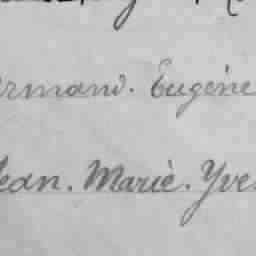 ermand. Eugène
Jean. Marie. Yves